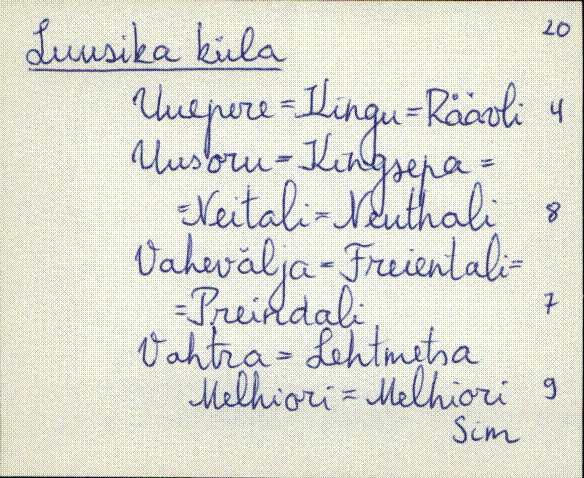 20
Luusika küla
Uuepere = Kingu = Räävli 4
Uusoru = Kingsepa =
= Neitali = Neuthali 8
Vahevälja = Freientali =
= Preindali 7
Vahtra = Lehtmetsa
Melhiori = Melhiori 9
Sim